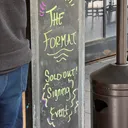 The
Format
Sold out
Signing
Event